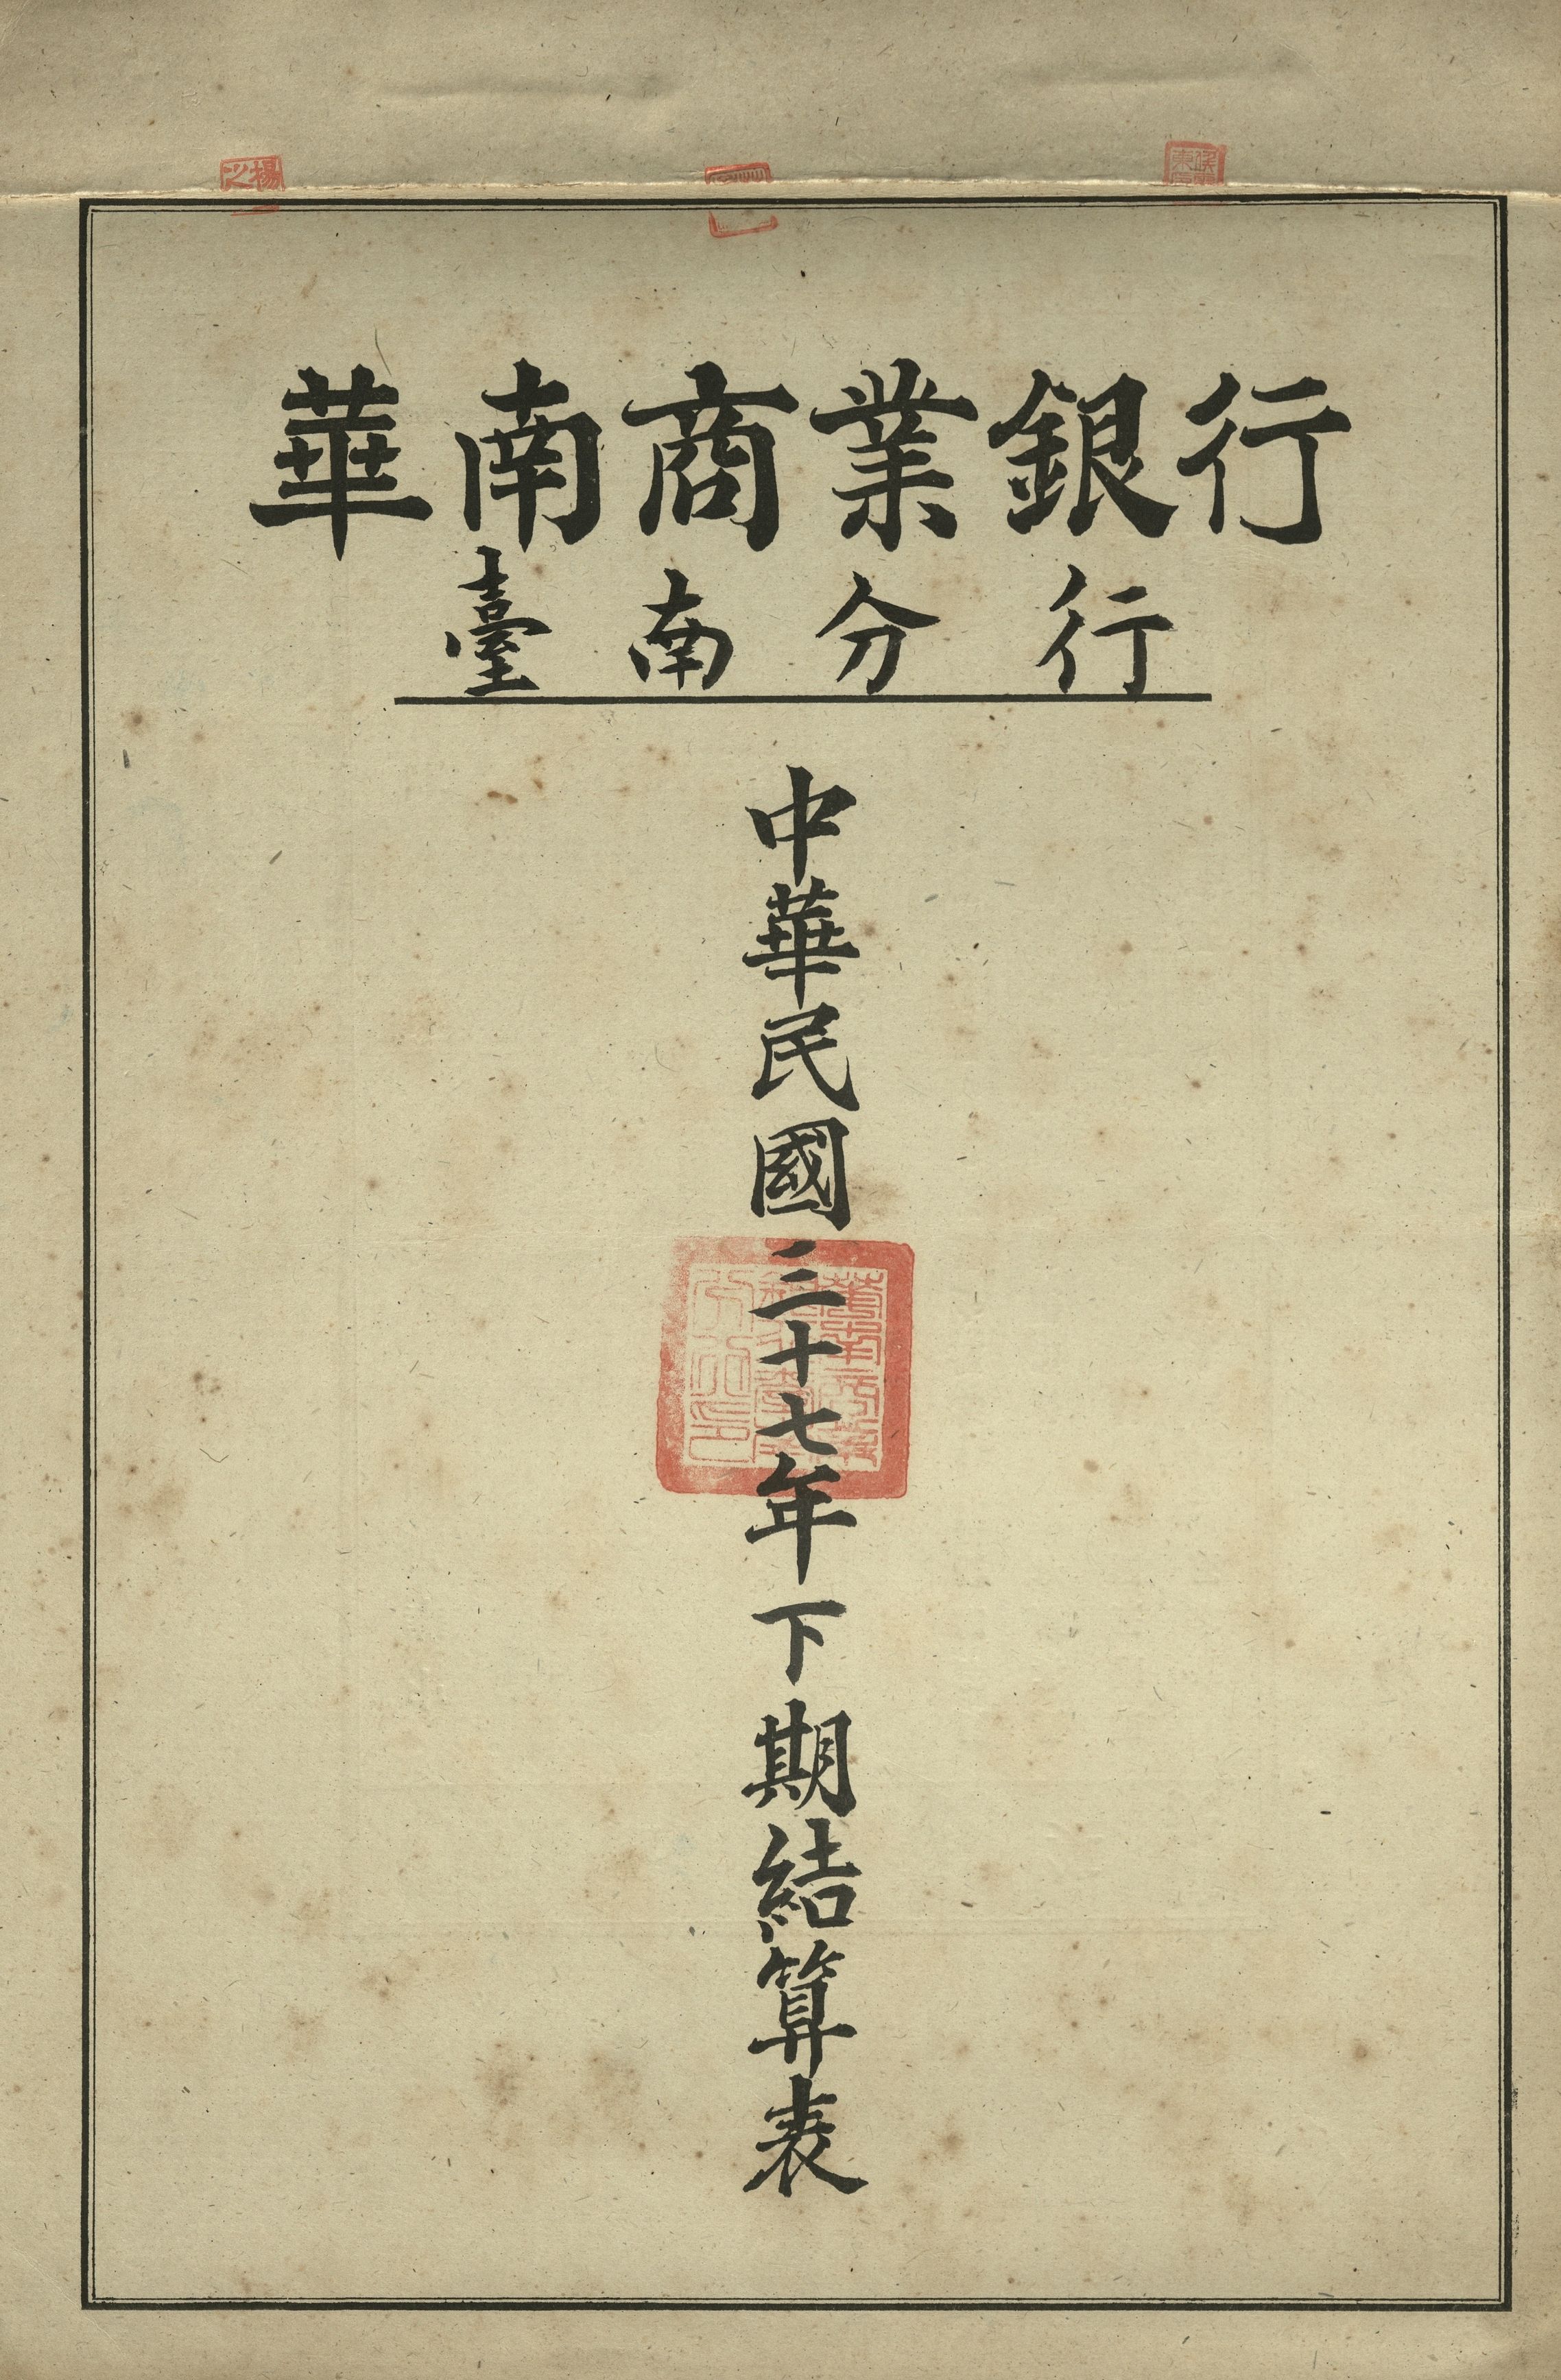 華南商業銀行
臺南分行
中華民國三十七年下期結算表